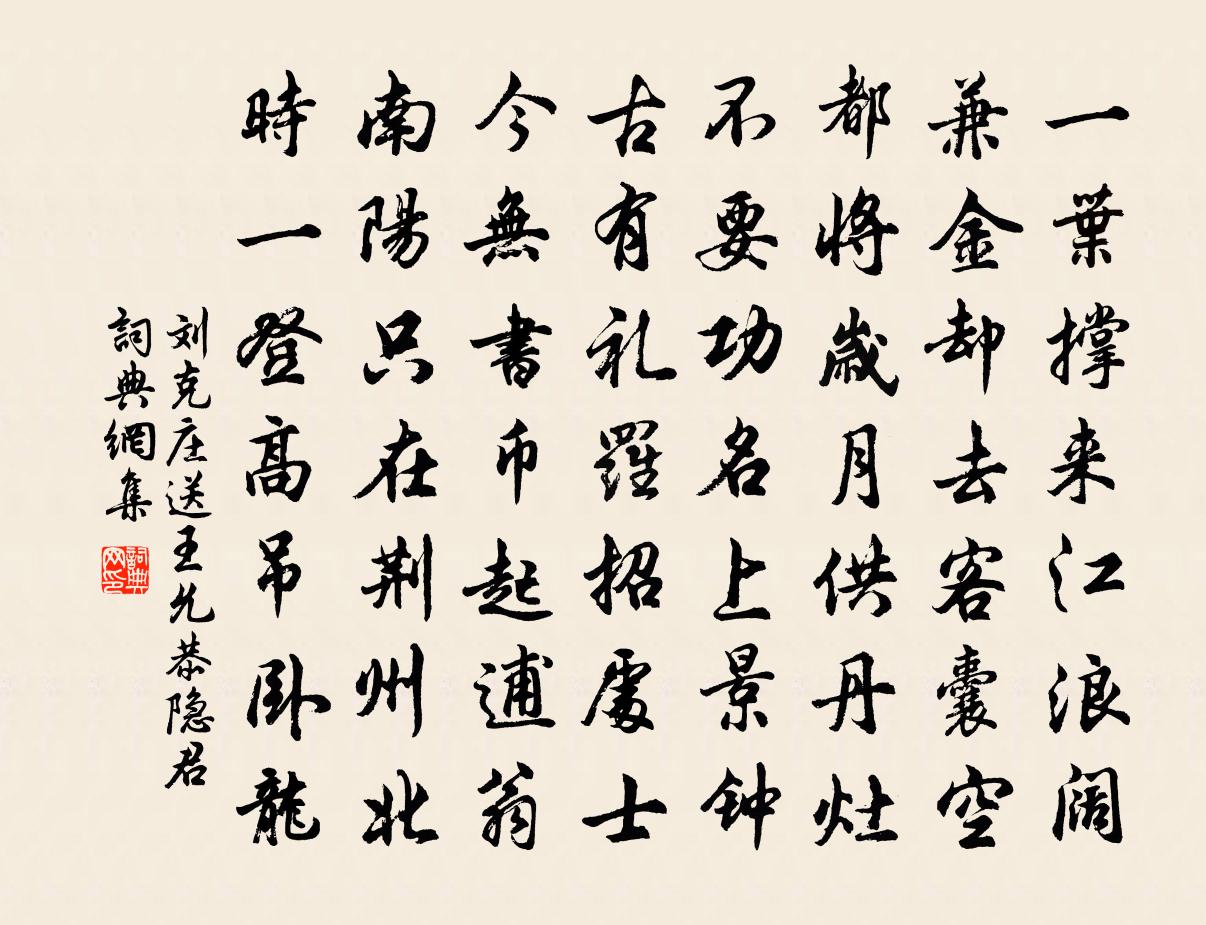 一葉撑来江浪阔
兼金却去客囊空
都将歲月供丹灶
不要功名上景钟
古有礼羅招處士
今無書币起逋翁
南陽只在荆州北
時一登高吊卧龍
刘克庄送王允恭隐君
詞典網集
詞典网印